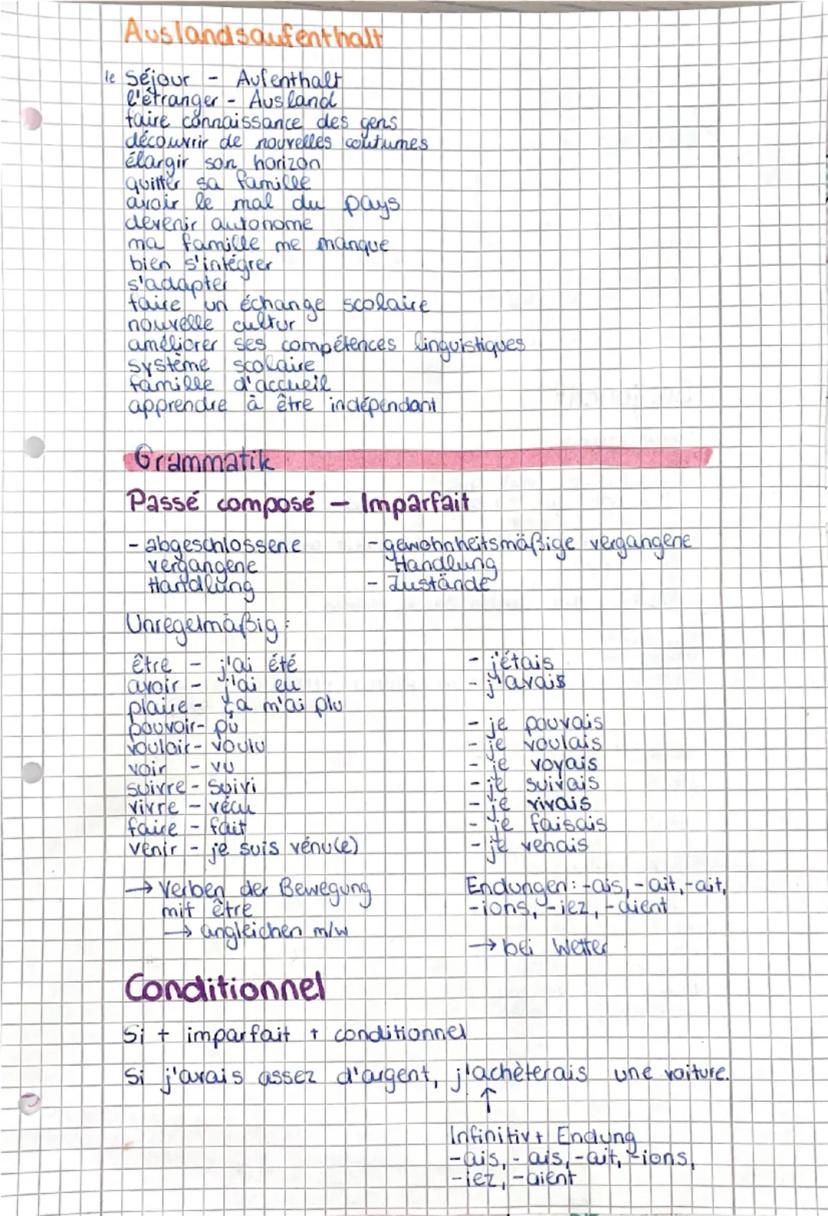 Auslandsaufenthalt
le séjour - Aufenthalt
l'étranger - Ausland
faire connaissance des gens
découvrir de nouvelles coutumes
élargir son horizon
quitter sa famille
avoir le mal du pays
devenir autonome
ma famille me manque
bien s'intégrer
s'adapter
faire un échange scolaire
nouvelle cultur
améliorer ses compétences linguistiques
système scolaire
famille d'accueil
apprendre à être indépendant
Grammatik
Passé composé - Imparfait
- abgeschlossene
vergangene
Handlung
- gewohnheitsmäßige vergangene
Handlung
- Zustände
Unregelmäßig:
être - j'ai été - j'étais
avoir - j'ai eu - j'avais
plaire - ça m'ai plu
pouvoir - pu - je pouvais
vouloir - voulu - je voulais
voir - vu - je voyais
suivre - suivi - je suivais
vivre - vécu - je vivais
faire - fait - je faisais
venir - je suis vénu(e) - je venais
→ Verben der Bewegung
mit être
→ angleichen m/w
Endungen: -ais, -ait, -ait,
-ions, -iez, -aient
→ bei Wetter
Conditionnel
Si + imparfait + conditionnel
Si j'avais assez d'argent, j'achèterais une voiture.
↑
Infinitiv + Endung
-ais, -ais, -ait, -ions,
-iez, -aient